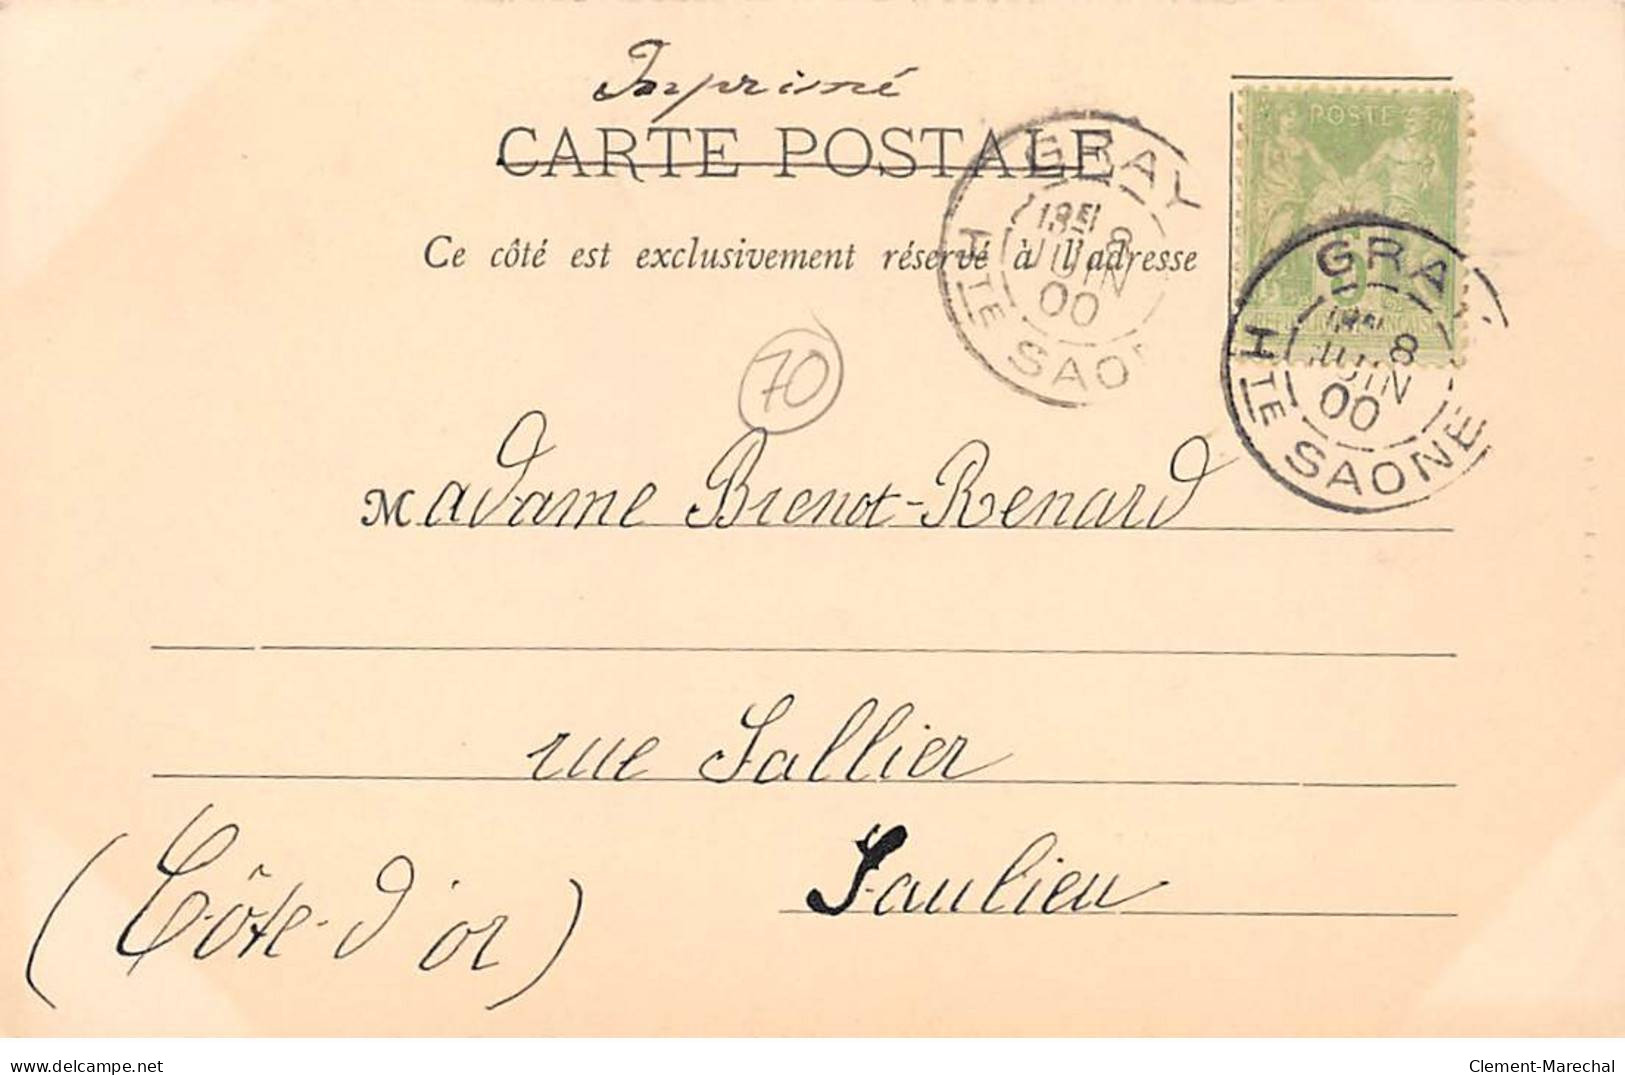 Imprimé
CARTE POSTALE
Ce côté est exclusivement réservé à l'adresse
POSTE
5
GRAY
8
JUIN
00
HTE SAONE
GRAY
8
JUIN
00
HTE SAONE
70
Madame Brenot-Renard
rue Sallier
Saulieu
(Côte-d'or)
www.delcampe.net
Clement-Marechal